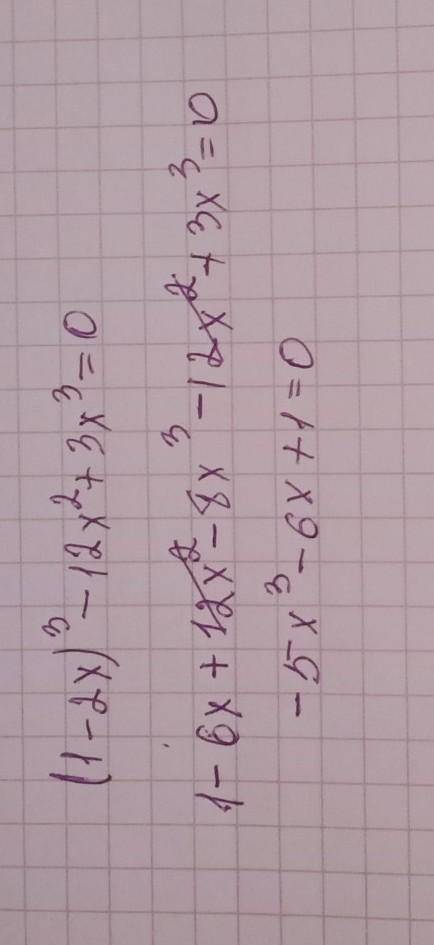 (1-2x)³-12x²+3x³=0
1-6x+12x²-8x³-12x²+3x³=0
-5x³-6x+1=0